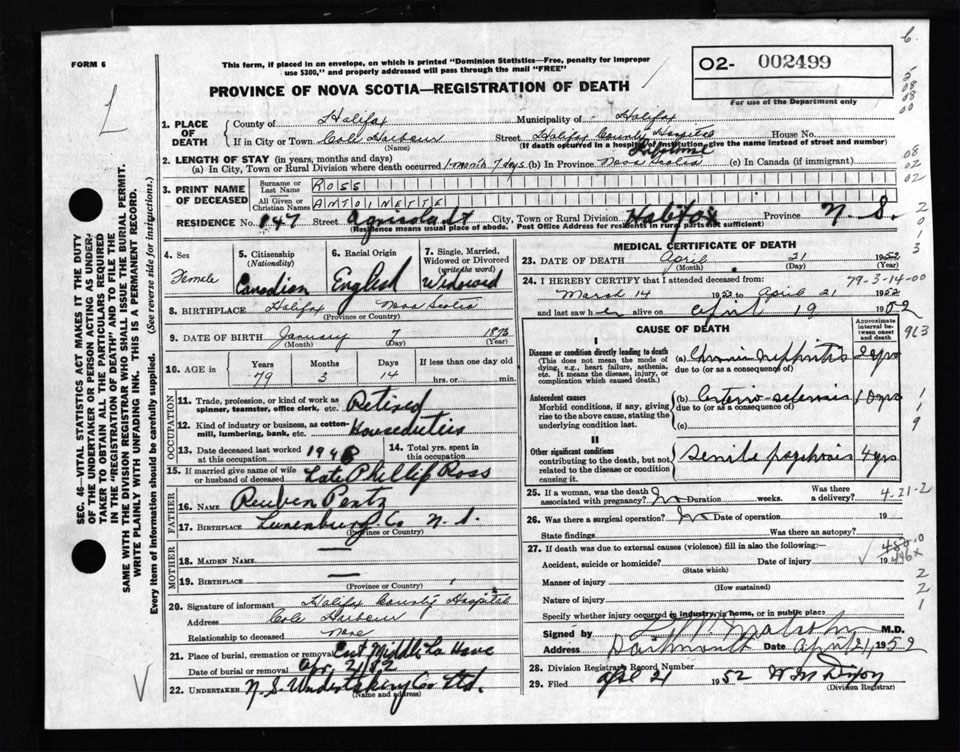 FORM 6
This form, if placed in an envelope, on which is printed "Dominion Statistics—Free, penalty for improper
use $300," and properly addressed will pass through the mail "FREE"
02- 002499
For use of the Department only
PROVINCE OF NOVA SCOTIA—REGISTRATION OF DEATH
1. PLACE OF DEATH
County of Halifax Municipality of Halifax
If in City or Town Cole Harbour Street Halifax County Hospital House No.
(Name) (If death occurred in a hospital or institution, give the name instead of street and number)
2. LENGTH OF STAY (in years, months and days)
(a) In City, Town or Rural Division where death occurred 1 month 7 days (b) In Province Lifetime Nova Scotia (c) In Canada (if immigrant)
3. PRINT NAME OF DECEASED
Surname or Last Name ROSS
All Given or Christian Names ANTOINETTE
RESIDENCE No. 147 Street Agricola St City, Town or Rural Division Halifax Province N. S.
(Residence means usual place of abode. Post Office Address for residents in rural parts not sufficient)
4. Sex Female
5. Citizenship (Nationality) Canadian
6. Racial Origin English
7. Single, Married, Widowed or Divorced (write the word) Widowed
8. BIRTHPLACE Halifax Nova Scotia
(Province or Country)
9. DATE OF BIRTH January 7 1873
(Month) (Day) (Year)
10. AGE in Years 79 Months 3 Days 14 If less than one day old hrs. or min.
OCCUPATION
11. Trade, profession, or kind of work as spinner, teamster, office clerk, etc. Retired
12. Kind of industry or business, as cotton-mill, lumbering, bank, etc. Houseduties
13. Date deceased last worked at this occupation 1948
14. Total yrs. spent in this occupation
15. If married give name of wife or husband of deceased Late Phillip Ross
FATHER
16. NAME Reuben Pentz
17. BIRTHPLACE Lunenburg Co N. S.
(Province or Country)
MOTHER
18. MAIDEN NAME —
19. BIRTHPLACE —
(Province or Country)
20. Signature of informant Halifax County Hospital
Address Cole Harbour
Relationship to deceased None
21. Place of burial, cremation or removal Middle La Have
Date of burial or removal Apr. 21/52
22. UNDERTAKER N. S. Undertaking Co Ltd.
(Name and address)
MEDICAL CERTIFICATE OF DEATH
23. DATE OF DEATH April 21 1952
(Month) (Day) (Year)
24. I HEREBY CERTIFY that I attended deceased from: 79-3-14-00
March 14 1952 to April 21 1952
and last saw her alive on April 19 1952
CAUSE OF DEATH
Approximate interval between onset and death
I
Disease or condition directly leading to death
(This does not mean the mode of dying, e.g., heart failure, asthenia, etc. It means the disease, injury, or complication which caused death.)
(a) Chronic nephritis 2 yrs
due to (or as a consequence of)
Antecedent causes
Morbid conditions, if any, giving rise to the above cause, stating the underlying condition last.
(b) Arterio-sclerosis 10 yrs
due to (or as a consequence of)
(c)
II
Other significant conditions
contributing to the death, but not related to the disease or condition causing it.
Senile psychosis 4 yrs
25. If a woman, was the death associated with pregnancy? No Duration weeks. Was there a delivery? 4-21-2
26. Was there a surgical operation? No Date of operation 19
State findings Was there an autopsy?
27. If death was due to external causes (violence) fill in also the following:—
Accident, suicide or homicide? Date of injury 19
(State which)
Manner of injury
(How sustained)
Nature of injury
Specify whether injury occurred in industry, in home, or in public place
446x
Signed by Malcolm M.D.
Address Dartmouth Date April 21, 1952
28. Division Registrar's Record Number
29. Filed April 21 1952 W M Dixon
(Division Registrar)
SEC. 46—VITAL STATISTICS ACT MAKES IT THE DUTY
OF THE UNDERTAKER OR PERSON ACTING AS UNDER-
TAKER TO OBTAIN ALL THE PARTICULARS REQUIRED
IN THE "REGISTRATION OF DEATH" AND TO FILE THE
SAME WITH THE DIVISION REGISTRAR WHO SHALL ISSUE THE BURIAL PERMIT.
WRITE PLAINLY WITH UNFADING INK. THIS IS A PERMANENT RECORD.
Every item of information should be carefully supplied. (See reverse side for instructions.)